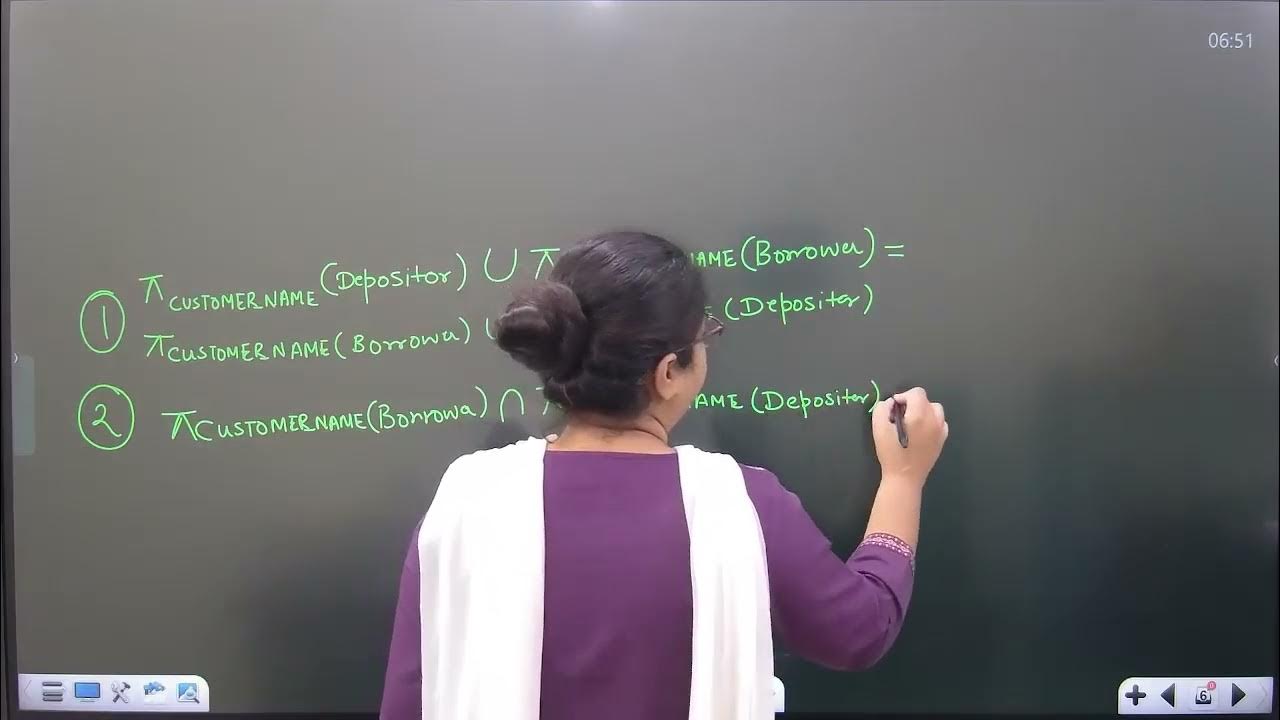 06:51
π CUSTOMERNAME (Depositor) ∪ π NAME (Borrower) =
① π CUSTOMERNAME (Borrower) (Depositor)
② π CUSTOMERNAME (Borrowa) ∩ π NAME (Depositor)
6